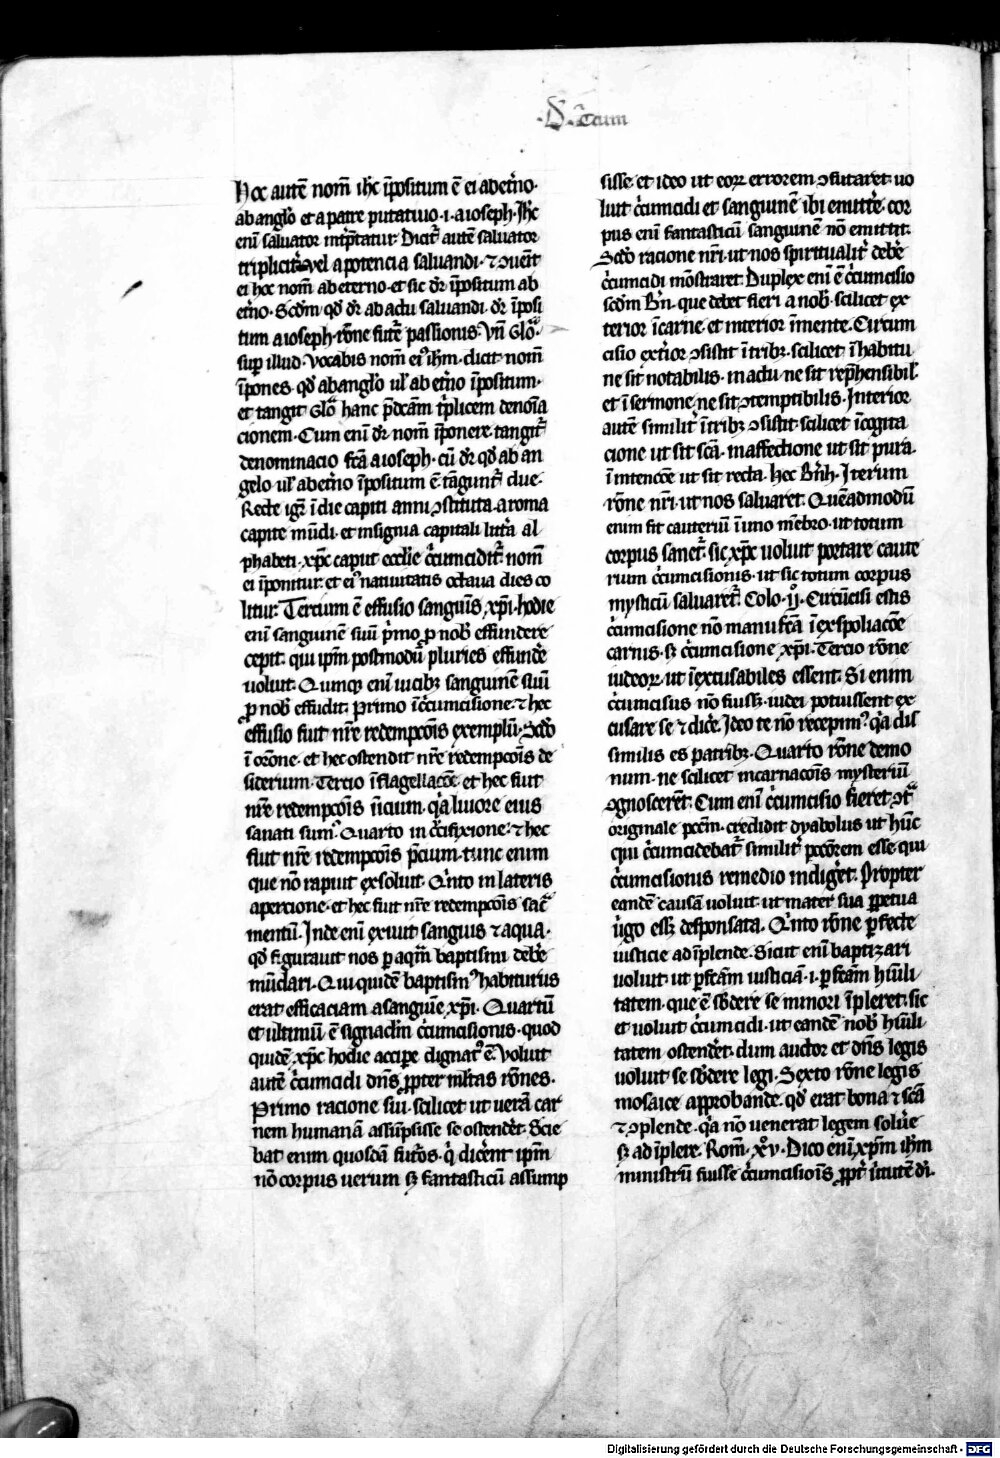 .D. Tcium
Hoc autē nom̄ ihc īpositum ē ei abet̄no.
ab angl̄o et a patre putatiuo .i. a ioseph. Jhc
enī saluator int̄pretatur. Dicit̄ autē saluator
triplicit̄. vel a potencia saluandi. ⁊ ꝯuēit
ei hoc nom̄ ab eterno. et sic dr̄ īpositum ab
et̄no. Scdm̄ qd̄ dr̄ ab actu saluandi. dr̄ īposi
tum a ioseph. rōne futē passionis. Vn̄ Glo.
sup illud. vocabis nom̄ eiꝰ ihm̄. dicit nom̄
īpones qd̄ ab angl̄o ul̓ ab et̄no īpositum.
et tangit Glo. hanc p̄dcām t̓plicem denoīa
cionem. Cum enī dr̄ nom̄ īponere. tangit̄
denominacio fcā a ioseph. cū dr̄ qd̄ ab an
gelo ul̓ abet̄no īpositum ē tāgunt̄ due.
Recte igr̄ ī die capiti anni ꝯstituta. a roma
capite mūdi. et insignia capitali litt̄a al
phabeti. xp̄c caput ecclīe c̓cumcidit̄. nom̄
ei īponitur. et eiꝰ natiuitatis octaua dies co
litur. Tercium ē effusio sanguīs xp̄i. hodie
enī sanguinē suū p̓mo ꝓ nob̄ effundere
cepit. qui ip̄m postmodū pluries effunde̓
uoluit. Quinqȝ enī uicibȝ sanguinē suū
ꝓ nob̄ effudit. Primo ī c̓cumcisione. ⁊ hec
effusio fuit nr̄e redempcōis exemplū. Scdo
ī orōne. et hec ostendit nr̄e redempcōis de
siderium. Tercio ī flagellacōe. et hec fuit
nr̄e redempcōis īicium. q̓a liuore eius
sanati sumꝰ. Quarto in c̓cifixione. ⁊ hec
fuit nr̄e redempcōis p̄cium. tunc enim
que nō rapuit exsoluit. Q̓nto in lateris
apercione. et hec fuit nr̄e redempcōis sac̄
mentū. Inde enī exiuit sanguis ⁊ aqua.
qd̄ figurauit nos ꝑ aqm̄ baptismi debe̓
mūdari. Qui quidē baptismꝰ habiturus
erat efficaciam a sanguīe xp̄i. Quartū
et ultimū ē signaclm̄ c̓cumcisionis. quod
quidē xp̄c hodie accipe dignatꝰ ē. Voluit
autē c̓cumcidi dn̄s ꝓpter mltas rōnes.
Primo racione sui. scilicet ut uerā car
nem humanā assūpsisse se ostende̓t. Scie
bat enim quosdā futos. q̓ dice̓nt ip̄m
nō corpus uerum sȝ fantasticū assump
sisse. et ideo ut eoꝝ errorem ꝯfutaret. uo
luit c̓cumcidi et sanguinē ibi emitte̓. cor
pus enī fantasticū sanguinē nō emittit.
Scdo racione nr̄i. ut nos spiritualit̓ debe̓
c̓cumcidi mōstraret. Duplex enī ē c̓cumcisio
scdm̄ Bn̄. que debet fieri a nob̄. scilicet ex
terior ī carne. et interior ī mente. Circum
cisio ext̓ior ꝯsistit ī tribȝ. scilicet ī habitu
ne sit notabilis. in actu ne sit rep̄hensibil̓.
et ī sermone ne sit ꝯtemptibilis. Interior
autē similit̓ ī tribȝ ꝯsistit. scilicet ī cogita
cione ut sit scā. in affectione ut sit pura.
ī intencōe ut sit recta. hec Bn̄h. Iterum
rōne nr̄i. ut nos saluaret. Quēadmodū
enim fit cauteriū ī uno mēbro. ut totum
corpus sanet̄. sic xp̄c uoluit portare caute
rium c̓cumcisionis. ut sic totum corpus
mysticū saluaret̄. Colo. ij. Circūcisi estis
c̓cumcisione nō manufcā ī exspoliacōe
carnis. sȝ c̓cumcisione xp̄i. Tercio rōne
iudeoꝝ. ut īexcusabiles essent. Si enim
c̓cumcisus nō fuissȝ. iudei potuissent ex
cusare se ⁊ dice̓. Ideo te nō recepimꝰ. q̓a dis
similis es patribȝ. Quarto rōne demo
num. ne scilicet incarnacōis mysteriū
ꝯgnoscere̓t. Cum enī c̓cumcisio fieret ꝯt̓
originale pccm̄. credidit dyabolus ut hūc
qui c̓cumcidebat̄ similit̓ pccōrem esse. qui
c̓cumcisionis remedio indige̓t. Propter
eandē causā uoluit. ut mater sua ꝑpetua
u̓go essȝ desponsata. Q̓nto rōne ꝑfecte
iusticie adīplende. Sicut enī baptizari
uoluit. ut ꝑfcām iusticiā .i. ꝑfcām hūili
tatem. que ē sb̄dere se minori īpleret. sic
et uoluit c̓cumcidi. ut eandē nob̄ hūili
tatem ostende̓t. dum auctor et dn̄s legis
uoluit se sb̄dere legi. Sexto rōne legis
mosaice approbande. qd̄ erat bona ⁊ scā
⁊ ꝯplende. q̓a nō uenerat legem solue̓
sȝ adīplere. Rom̄. xv. Dico enī xp̄m ihm̄
ministrū fuisse c̓cumcisiōis ꝓpt̓ u̓itatē di̓.
Digitalisierung gefördert durch die Deutsche Forschungsgemeinschaft - DFG